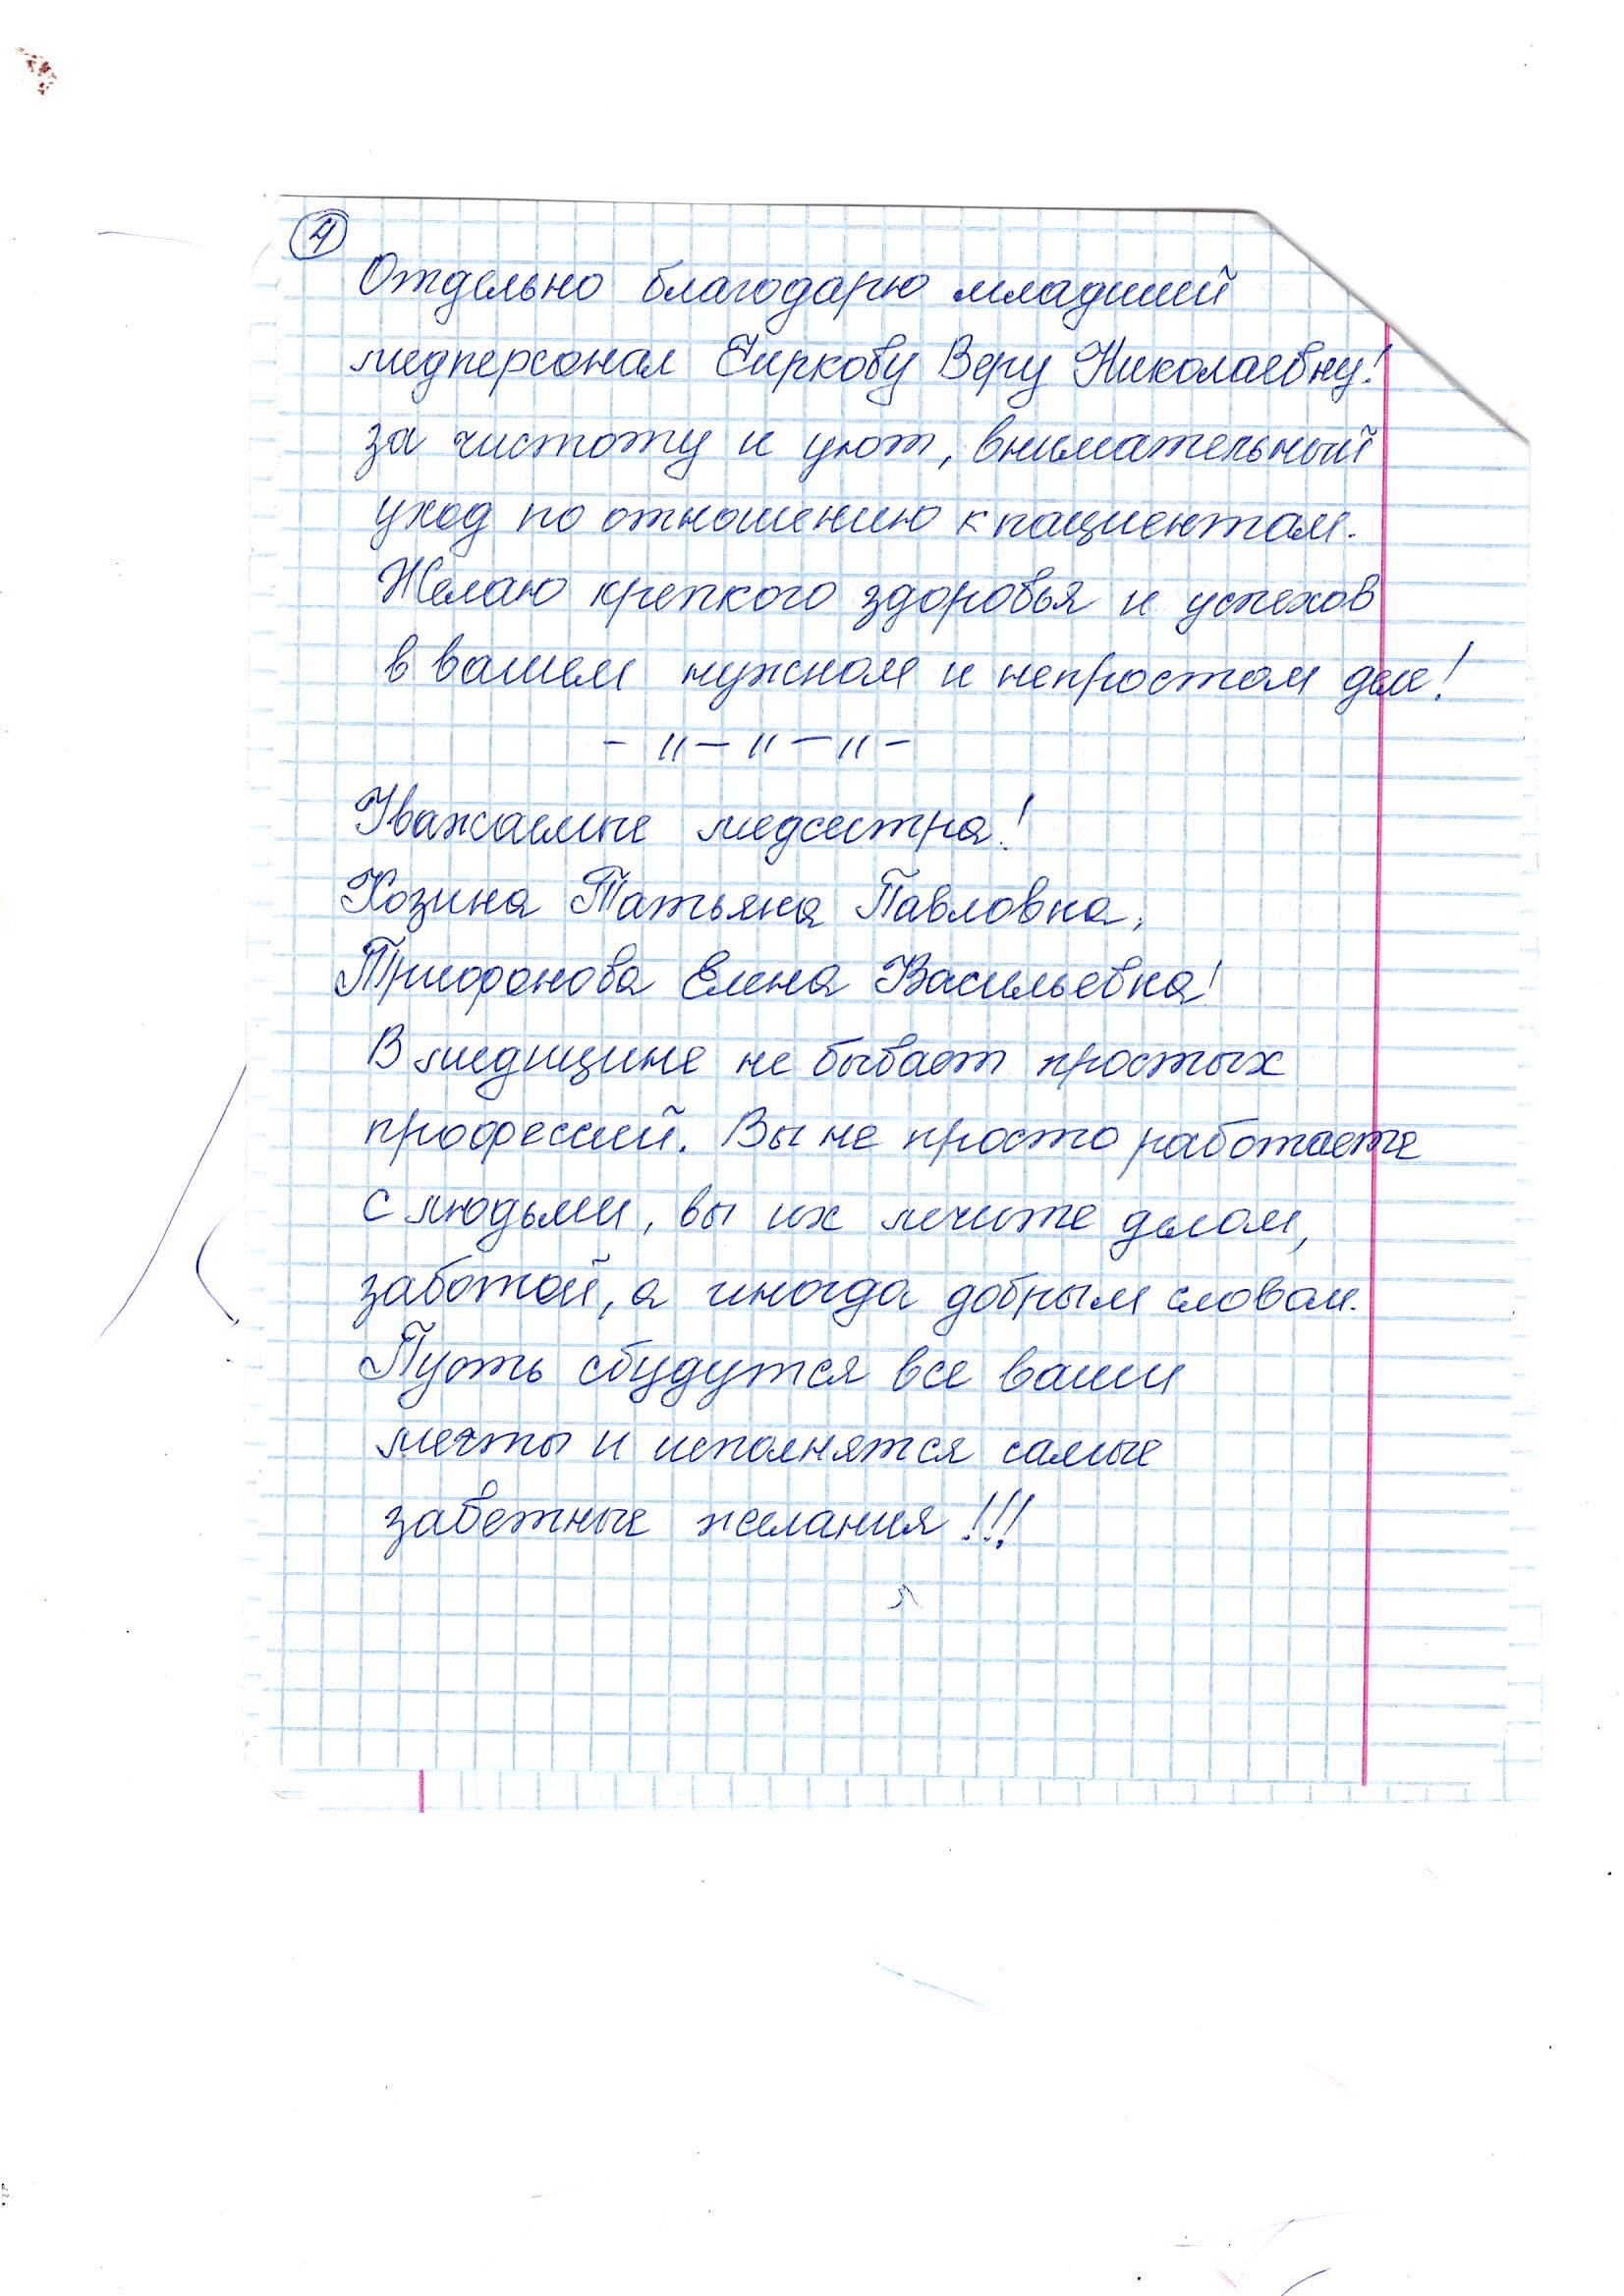 4
Отдельно благодарю младший
медперсонал Сиркову Веру Николаевну!
за чистоту и уют, внимательный
уход по отношению к пациентам.
Желаю крепкого здоровья и успехов
в вашем нужном и непростом деле!
- " - " - " -
Уважаемые медсестра!
Козина Татьяна Павловна,
Трифонова Елена Васильевна!
В медицине не бывает простых
профессий. Вы не просто работаете
с людьми, вы их лечите делом,
заботой, а иногда добрым словом.
Пусть сбудутся все ваши
мечты и исполнятся самые
заветные желания!!!